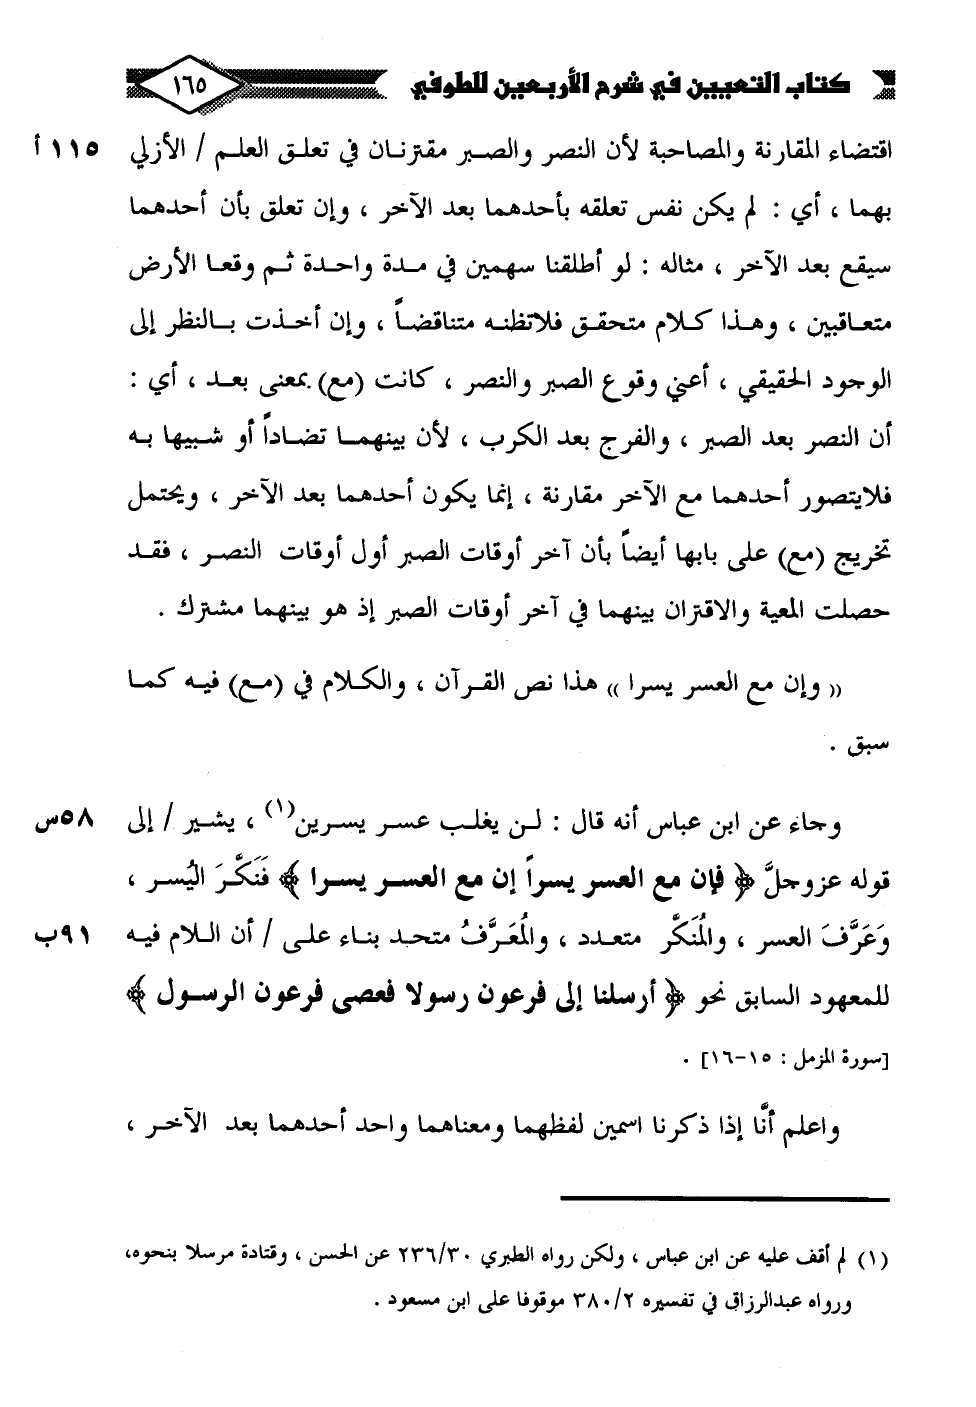 كتاب التعيين في شرح الأربعين للطوفي ١٦٥
اقتضاء المقارنة والمصاحبة لأن النصر والصبر مقترنان في تعلق العلم / الأزلي ١١٥ أ
بهما ، أي : لم يكن نفس تعلقه بأحدهما بعد الآخر ، وإن تعلق بأن أحدهما
سيقع بعد الآخر ، مثاله : لو أطلقنا سهمين في مدة واحدة ثم وقعا الأرض
متعاقبين ، وهذا كلام متحقق فلاتظنه متناقضاً ، وإن أخذت بالنظر إلى
الوجود الحقيقي ، أعني وقوع الصبر والنصر ، كانت (مع) بمعنى بعد ، أي :
أن النصر بعد الصبر ، والفرج بعد الكرب ، لأن بينهما تضاداً أو شبيها به
فلايتصور أحدهما مع الآخر مقارنة ، إنما يكون أحدهما بعد الآخر ، ويحتمل
تخريج (مع) على بابها أيضاً بأن آخر أوقات الصبر أول أوقات النصر ، فقد
حصلت المعية والاقتران بينهما في آخر أوقات الصبر إذ هو بينهما مشترك .
« وإن مع العسر يسرا » هذا نص القرآن ، والكلام في (مع) فيه كما
سبق .
وجاء عن ابن عباس أنه قال : لن يغلب عسر يسرين(١) ، يشير / إلى ٥٨س
قوله عزوجلَّ ﴿ فإن مع العسر يسراً إن مع العسر يسرا ﴾ فَنَكَّرَ اليُسر ،
وَعَرَّفَ العسر ، والمُنَكَّر متعدد ، والمُعَرَّفُ متحد بناء على / أن اللام فيه ٩١ب
للمعهود السابق نحو ﴿ أرسلنا إلى فرعون رسولا فعصى فرعون الرسول ﴾
[سورة المزمل : ١٥-١٦] .
واعلم أنَّا إذا ذكرنا اسمين لفظهما ومعناهما واحد أحدهما بعد الآخر ،
(١) لم أقف عليه عن ابن عباس ، ولكن رواه الطبري ٢٣٦/٣٠ عن الحسن ، وقتادة مرسلا بنحوه،
ورواه عبدالرزاق في تفسيره ٣٨٠/٢ موقوفا على ابن مسعود .